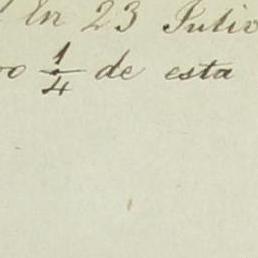 En 23 Julio
1/4 de esta